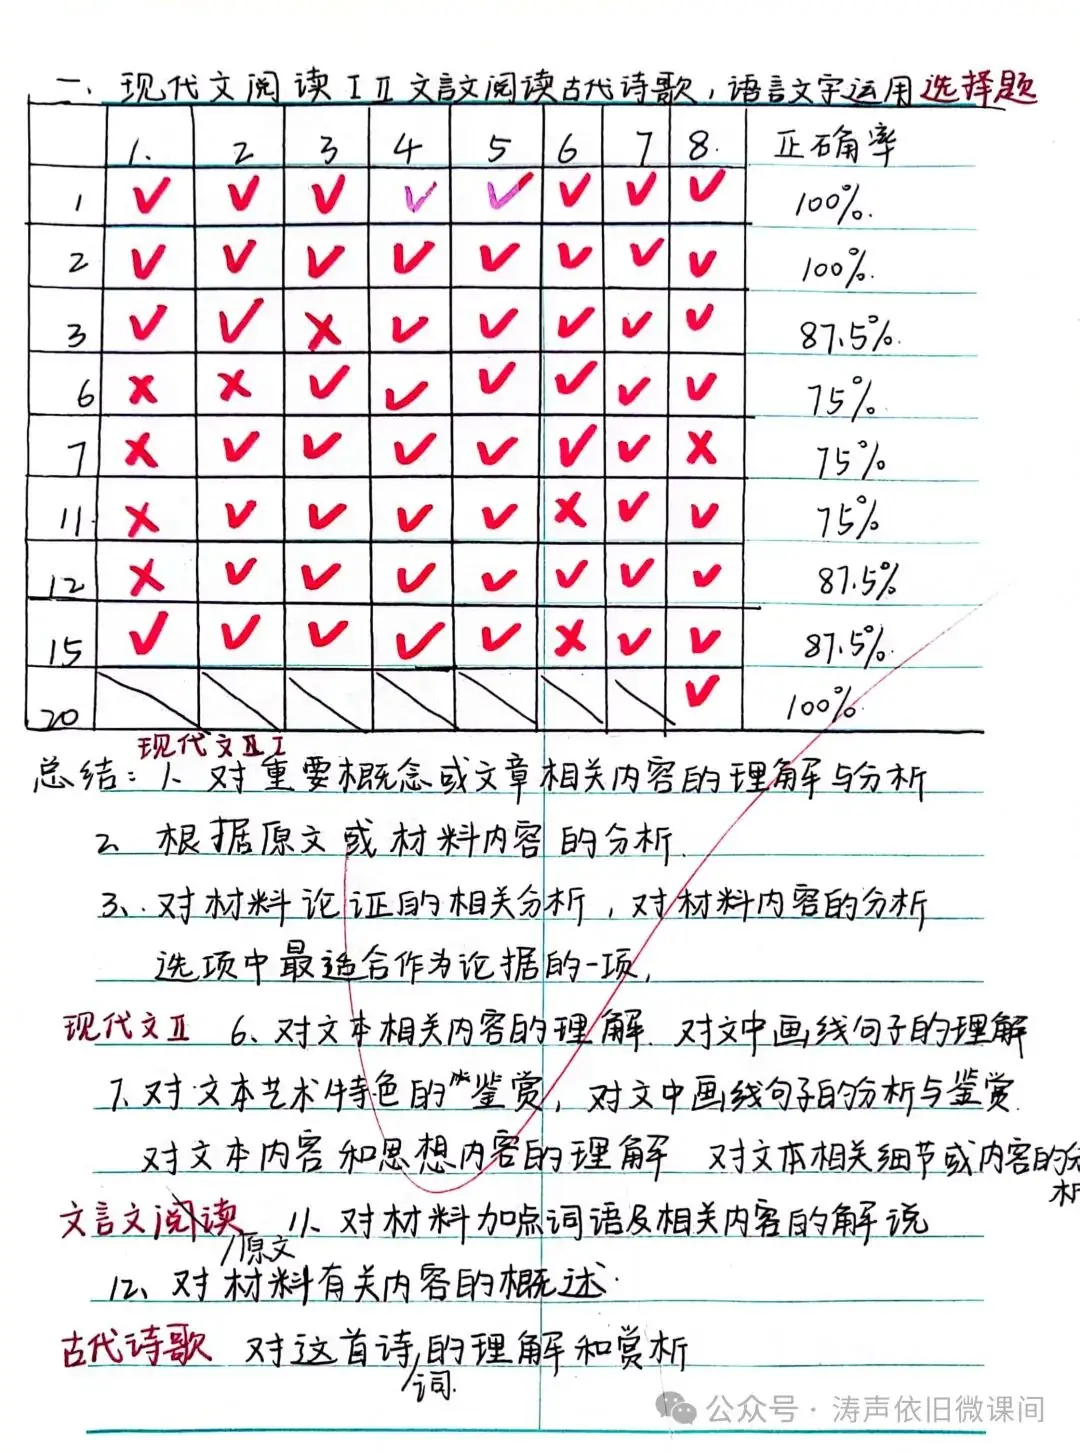 一、现代文阅读ⅠⅡ文言文阅读古代诗歌，语言文字运用选择题
1. 2 3 4 5 6 7 8. 正确率
1 ✓ ✓ ✓ ✓ ✓ ✓ ✓ ✓ 100%.
2 ✓ ✓ ✓ ✓ ✓ ✓ ✓ ✓ 100%.
3 ✓ ✓ ✗ ✓ ✓ ✓ ✓ ✓ 87.5%.
6 ✗ ✗ ✓ ✓ ✓ ✓ ✓ ✓ 75%.
7 ✗ ✓ ✓ ✓ ✓ ✓ ✓ ✗ 75%
11. ✗ ✓ ✓ ✓ ✓ ✗ ✓ ✓ 75%
12 ✗ ✓ ✓ ✓ ✓ ✓ ✓ ✓ 87.5%
15 ✓ ✓ ✓ ✓ ✓ ✗ ✓ ✓ 87.5%.
20 ✓ 100%.
现代文Ⅰ
总结：1、对重要概念或文章相关内容的理解与分析
2、根据原文或材料内容的分析.
3、对材料论证的相关分析，对材料内容的分析
选项中最适合作为论据的一项，
现代文Ⅱ 6、对文本相关内容的理解. 对文中画线句子的理解
7、对文本艺术特色的鉴赏，对文中画线句子的分析与鉴赏.
对文本内容和思想内容的理解 对文本相关细节或内容的分析
文言文阅读 11、对材料加点词语及相关内容的解说
/原文
12、对材料有关内容的概述.
古代诗歌 对这首诗的理解和赏析
/词.
公众号·涛声依旧微课间